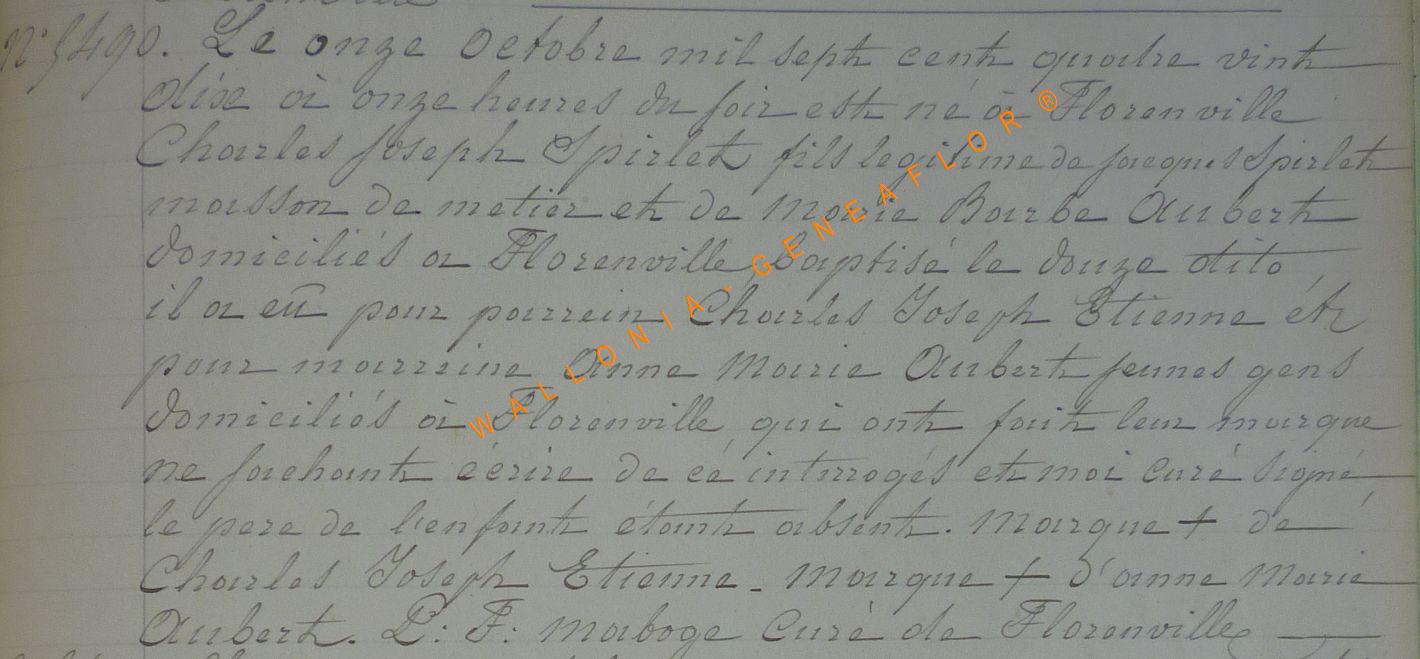 N° 5490. Le onze Octobre mil sept cent quatre vint
dixe à onze heures du soir est né à Florenville
Charles Joseph Spirlet fils legitime de jacques Spirlet
masson de metier et de Marie Barbe Aubert
domiciliés a Florenville, baptisé le douze dito
il a eû pour parrein Charles Joseph Etienne ét
pour marreine Anne Marie Aubert jeunes gens
domiciliés à Florenville, qui ont fait leur marque
ne sachant écrire de cé interrogés et moi curé signé
le pere de l'enfant étant absent. Marque + de
Charles Joseph Etienne - Marque + d'anne Marie
Aubert. P: F: Maboge Curé de Florenville
WALLONIA-GENEAFLOR ®